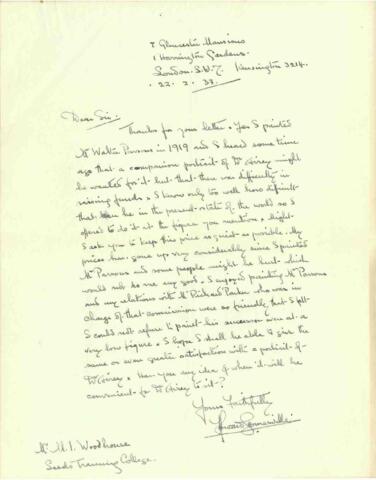 7 Gloucester Mansions
1 Harrington Gardens
London. S.W.7. Kensington 3214.
22. 2. 38.
Dear Sir.
Thanks for your letter. Yes I painted
Mr Walter Parsons in 1919 and I heard some time
ago that a companion portrait of Dr Airey might
be wanted for it but that there was difficulty in
raising funds. I know only too well how difficult
that can be in the present state of the world so I
offered to do it at the figure you mention. Might
I ask you to keep this price as quiet as possible. My
prices have gone up very considerably since I painted
Mr Parsons and some people might be hurt which
would not do me any good. I enjoyed painting Mr Parsons
and my relations with Mr Richard Parker who was in
charge of that commission were so friendly that I felt
I could not refuse to paint his successor even at a
very low figure. I hope I shall be able to give the
same or even greater satisfaction with a portrait of
Dr Airey. Have you any idea of when it will be
convenient for Dr Airey to sit?
Yours faithfully
Mr M. I. Woodhouse
Leeds Training College.